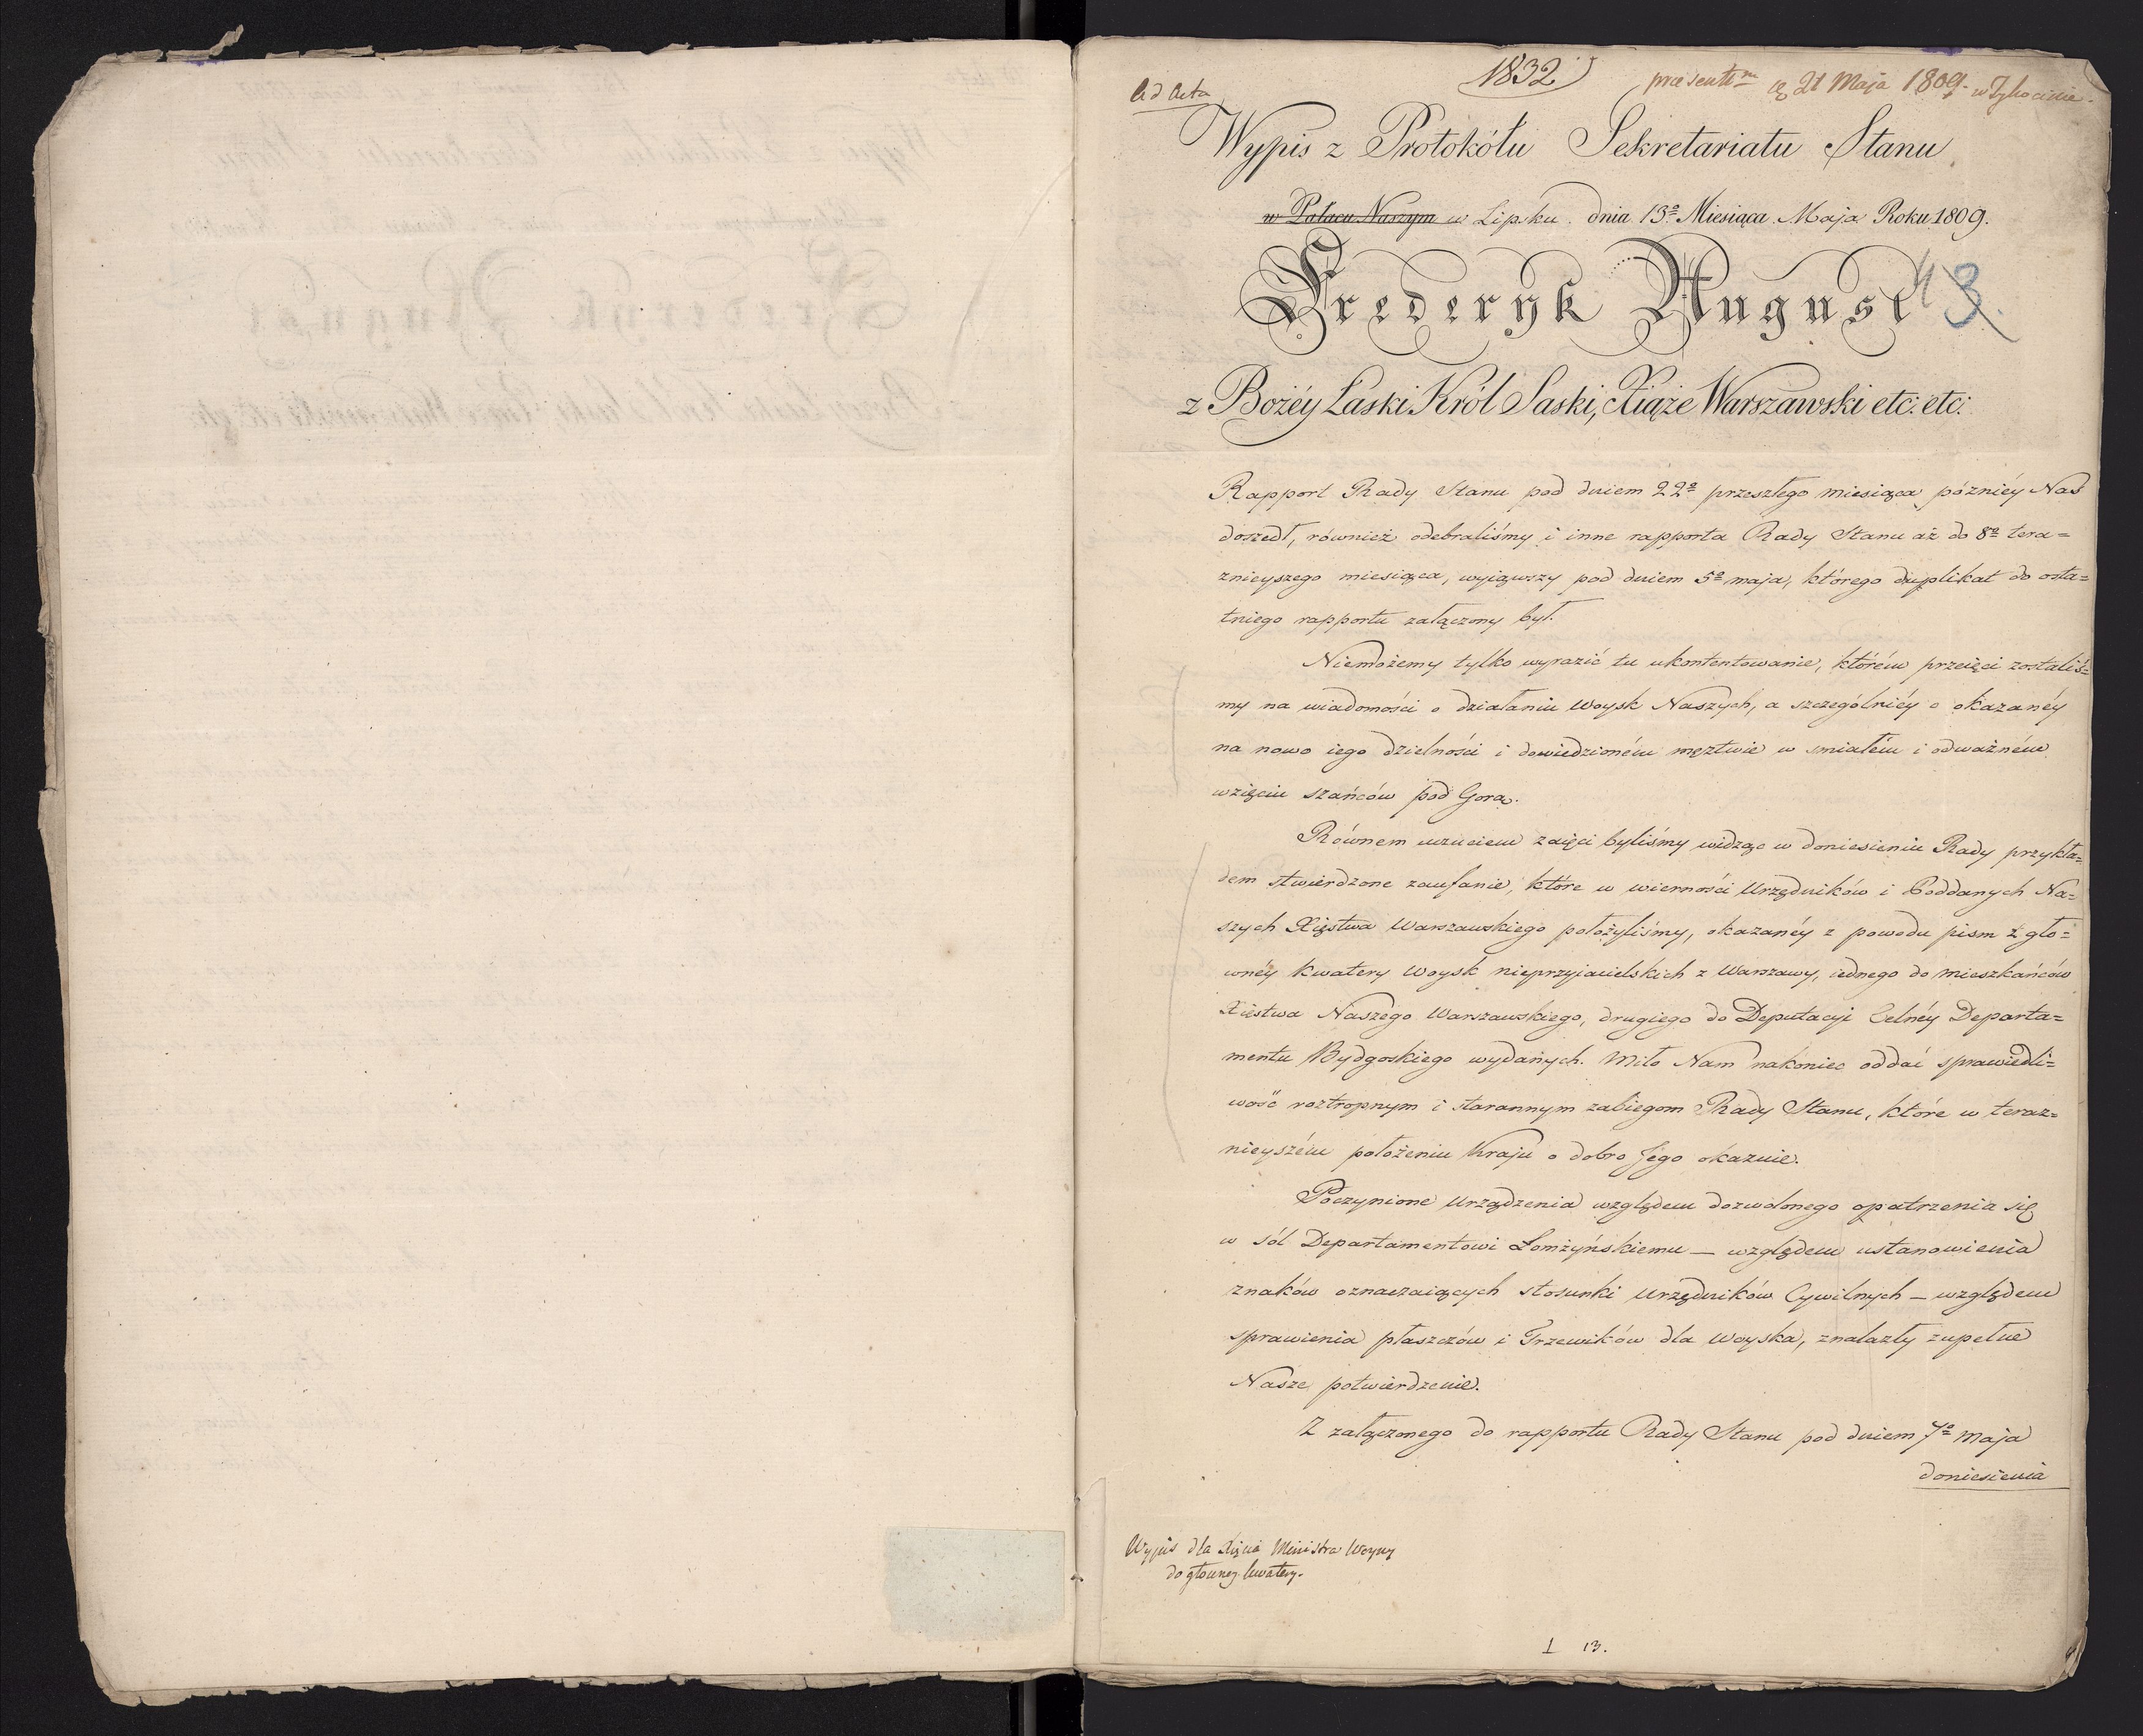 Ad Acta
1832
praesent. 21 Maja 1809. w Tykocinie.
Wypis z Protokółu Sekretariatu Stanu
w Pałacu Naszym w Lipsku dnia 13º Miesiąca Maja Roku 1809.
Frederyk August
13.
z Bożéy Łaski Król Saski, Xiąże Warszawski etc: etc:
Rapport Rady Stanu pod dniem 22º przeszłego miesiąca późniéy Nas
doszedł, również odebraliśmy i inne rapporta Rady Stanu aż do 8º tera=
znieyszego miesiąca, wyiąwszy pod dniem 5º maja, którego duplikat do osta=
tniego rapportu załączony był.
Niemożemy tylko wyrazić tu ukontentowanie, którém przeięci zostaliś=
my na wiadomości o działaniu Woysk Naszych, a szczególniéy o okazanéy
na nowo iego dzielności i dowiedzioném męztwie w smiałém i odważném
wzięciu szańców pod Gorą.
Równem uczuciem zaięci byliśmy widząc w doniesieniu Rady przykła=
dem stwierdzone zaufanie, które w wierności Urzędników i Poddanych Na=
szych Xięstwa Warszawskiego położyliśmy, okazanéy z powodu pism z gło=
wnéy kwatery Woysk nieprzyjacielskich z Warszawy, iednego do mieszkańców
Xięstwa Naszego Warszawskiego, drugiego do Deputacyi Celnéy Departa=
mentu Bydgoskiego wydanych. Miło Nam nakoniec oddać sprawiedli=
wość roztropnym i starannym zabiegom Rady Stanu, które w teraz=
nieyszém położeniu Kraju o dobro Jego okazuie.
Poczynione Urządzenia względem dozwolonego opatrzenia się
w sól Departamentowi Łomżyńskiemu — względem ustanowienia
znaków oznaczaiących stosunki Urzędników Cywilnych — względem
sprawienia płaszczów i Trzewików dla Woyska, znalazły zupełne
Nasze potwierdzenie.
Z załączonego do rapportu Rady Stanu pod dniem 7º maja
doniesienia
Wypis dla Xięcia Ministra Woyny
do głównej kwatery.
1 13.